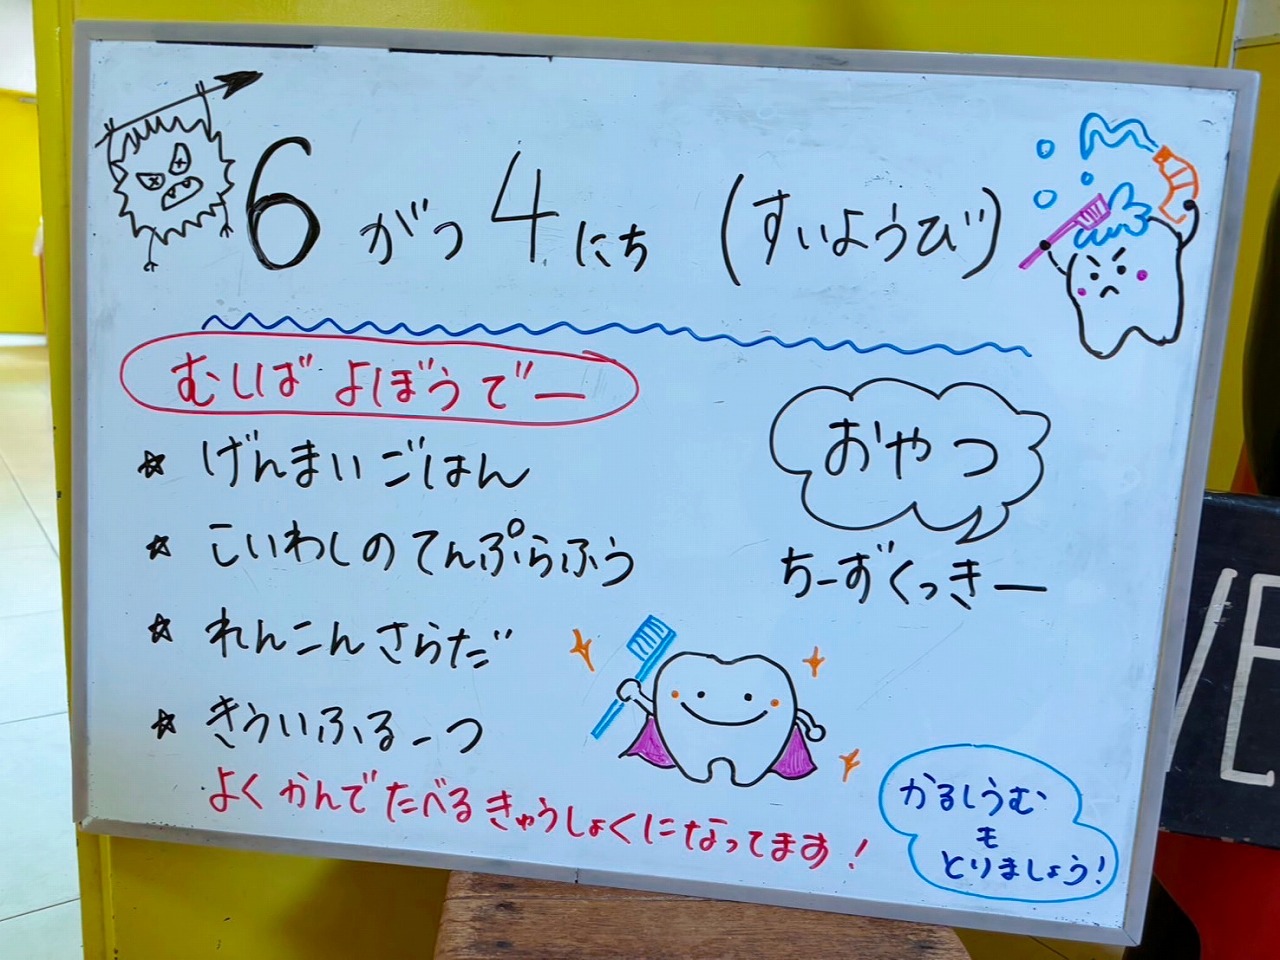 6がつ4にち (すいようび)
むしば よぼうでー
☆ げんまいごはん
☆ こいわしのてんぷらふう
☆ れんこんさらだ
☆ きういふるーつ
よくかんでたべるきゅうしょくになってます!
おやつ
ちーずくっきー
かるしうむ
も
とりましょう!
VE